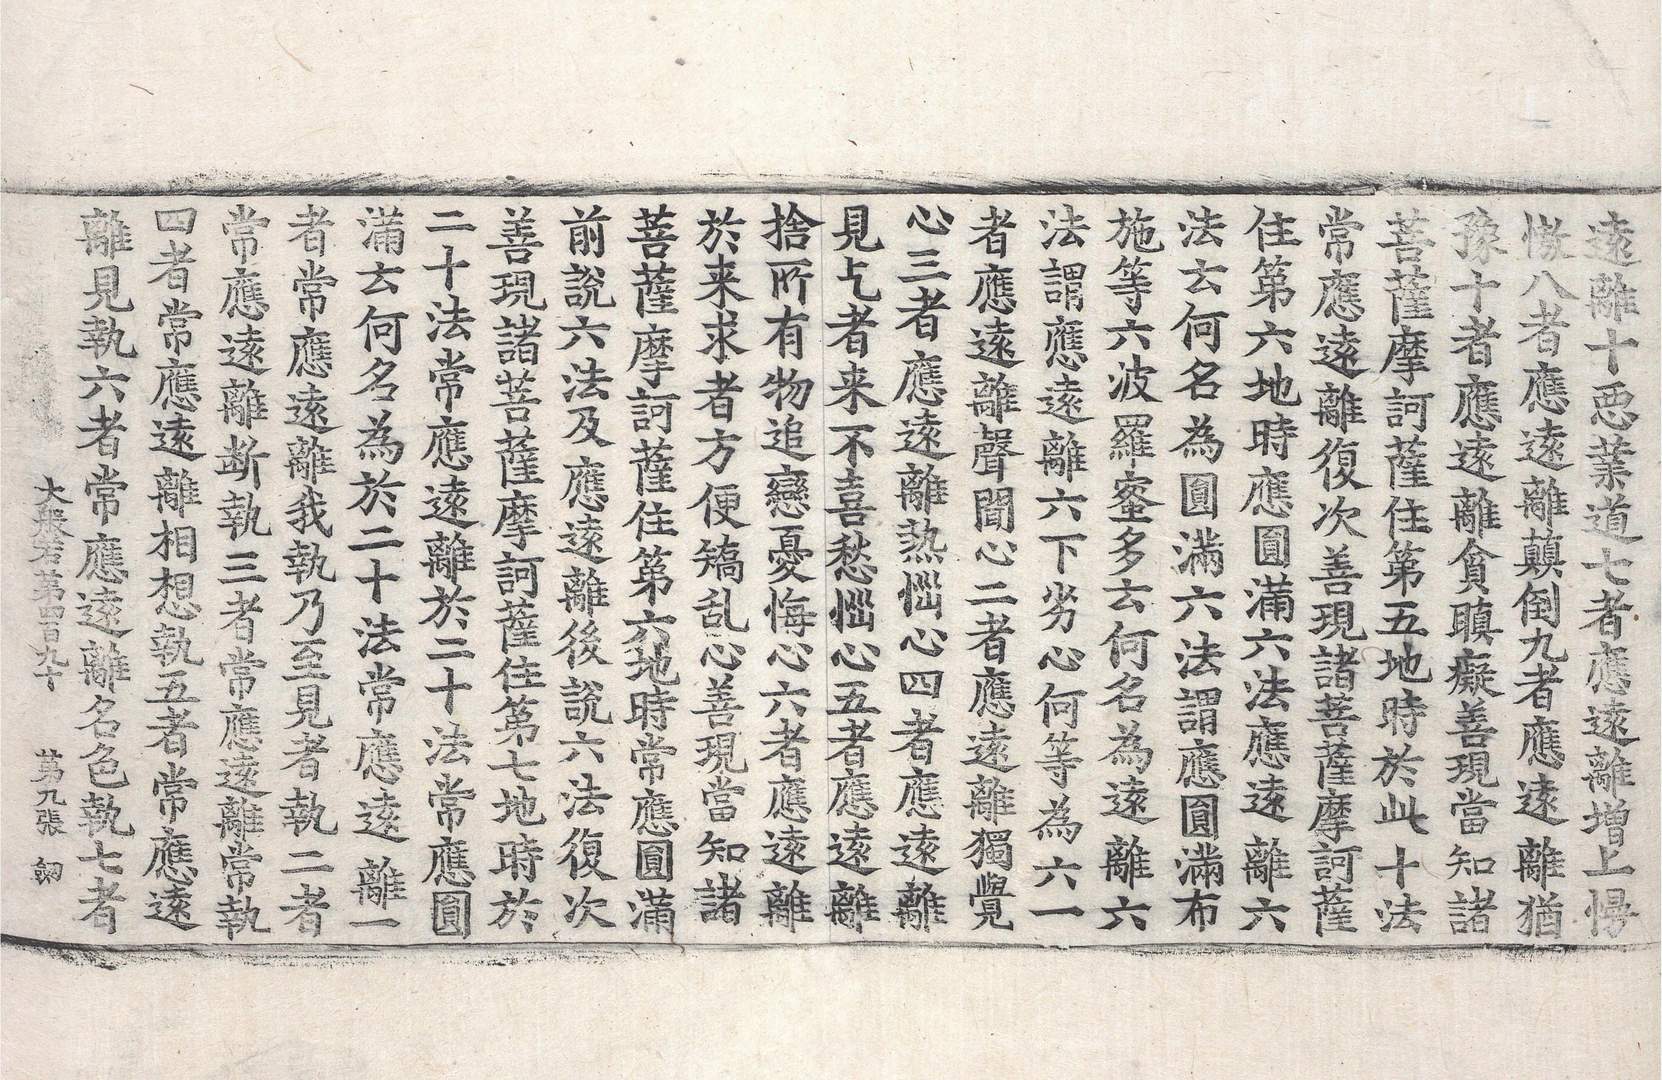 遠離十惡業道七者應遠離增上慢
慠八者應遠離顚倒九者應遠離猶
豫十者應遠離貪瞋癡善現當知諸
菩薩摩訶薩住第五地時於此十法
常應遠離復次善現諸菩薩摩訶薩
住第六地時應圓滿六法應遠離六
法云何名為圓滿六法謂應圓滿布
施等六波羅蜜多云何名為遠離六
法謂應遠離六下劣心何等為六一
者應遠離聲聞心二者應遠離獨覺
心三者應遠離熱惱心四者應遠離
見乞者来不喜愁惱心五者應遠離
捨所有物追戀憂悔心六者應遠離
於来求者方便矯乱心善現當知諸
菩薩摩訶薩住第六地時常應圓滿
前說六法及應遠離後說六法復次
善現諸菩薩摩訶薩住第七地時於
二十法常應遠離於二十法常應圓
滿云何名為於二十法常應遠離一
者常應遠離我執乃至見者執二者
常應遠離断執三者常應遠離常執
四者常應遠離相想執五者常應遠
離見執六者常應遠離名色執七者
大般若第四百九十 第九張 劒